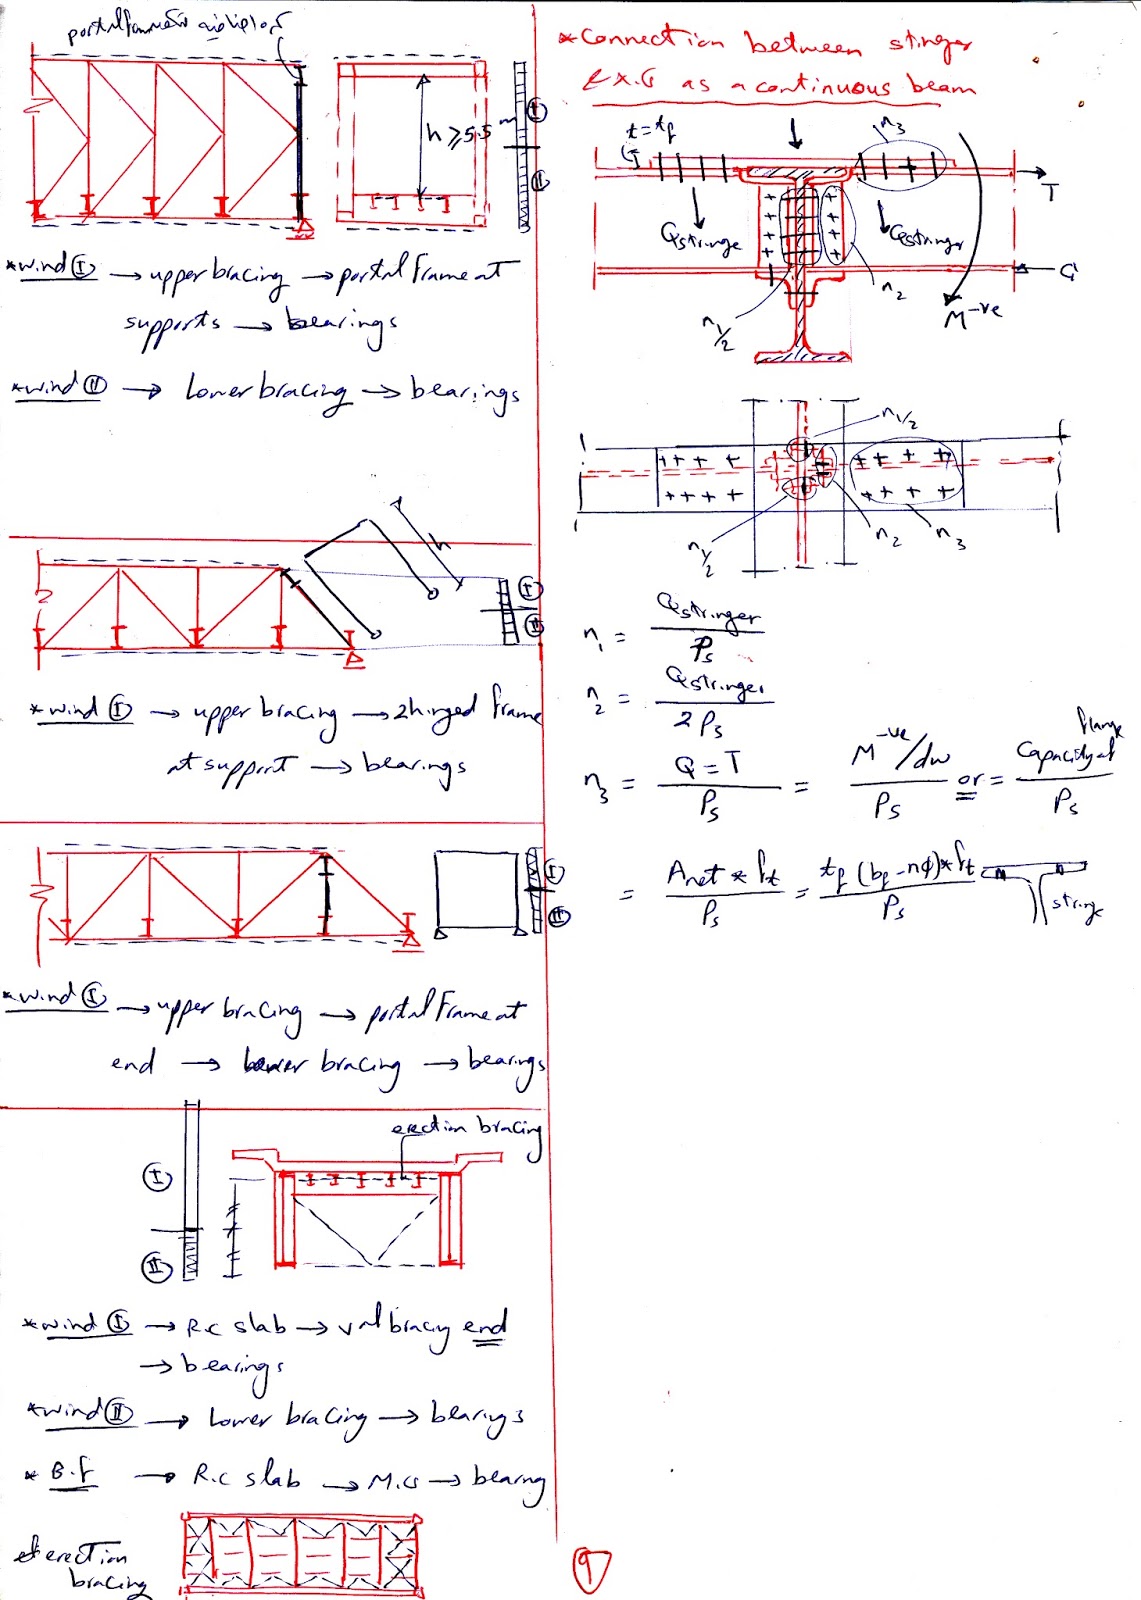 h ≥ 5.5 m
I
II
*wind I → upper bracing → portal frame at
supports → bearings
*wind II → Lower bracing → bearings
h
I
II
*wind I → upper bracing → 2hinged frame
at support → bearings
I
II
*wind I → upper bracing → portal Frame at
end → lower bracing → bearings
erection bracing
I
II
*wind I → R.C slab → bracing end
→ bearings
*wind II → Lower bracing → bearings
* B.f → R.C slab → M.G → bearing
erection
bracing
*Connection between stinger
& X.G as a continuous beam
t=tf
n3
T
Qstringe
Qstringer
C
n2
n1/2
M-ve
n1/2
n1/2
n2
n3
n1 = Qstringer / Ps
n2 = Qstringer / 2Ps
n3 = Q=T / Ps = M-ve/dw / Ps or = Capacity of flange / Ps
= Anet * ft / Ps = tf (bf-nϕ)*ft / Ps
stringe
9